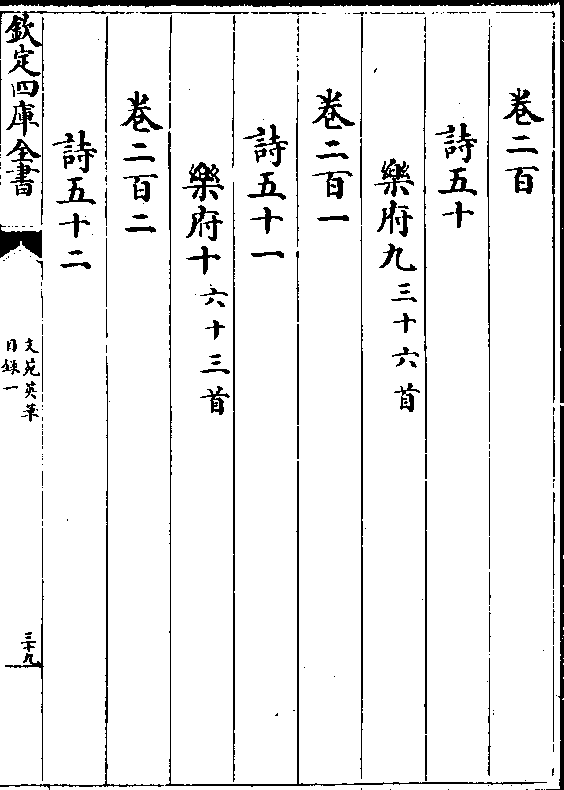 卷二百
詩五十
樂府九三十六首
卷二百一
詩五十一
樂府十六十三首
卷二百二
詩五十二
欽定四庫全書
文苑英華
目録一
三十九